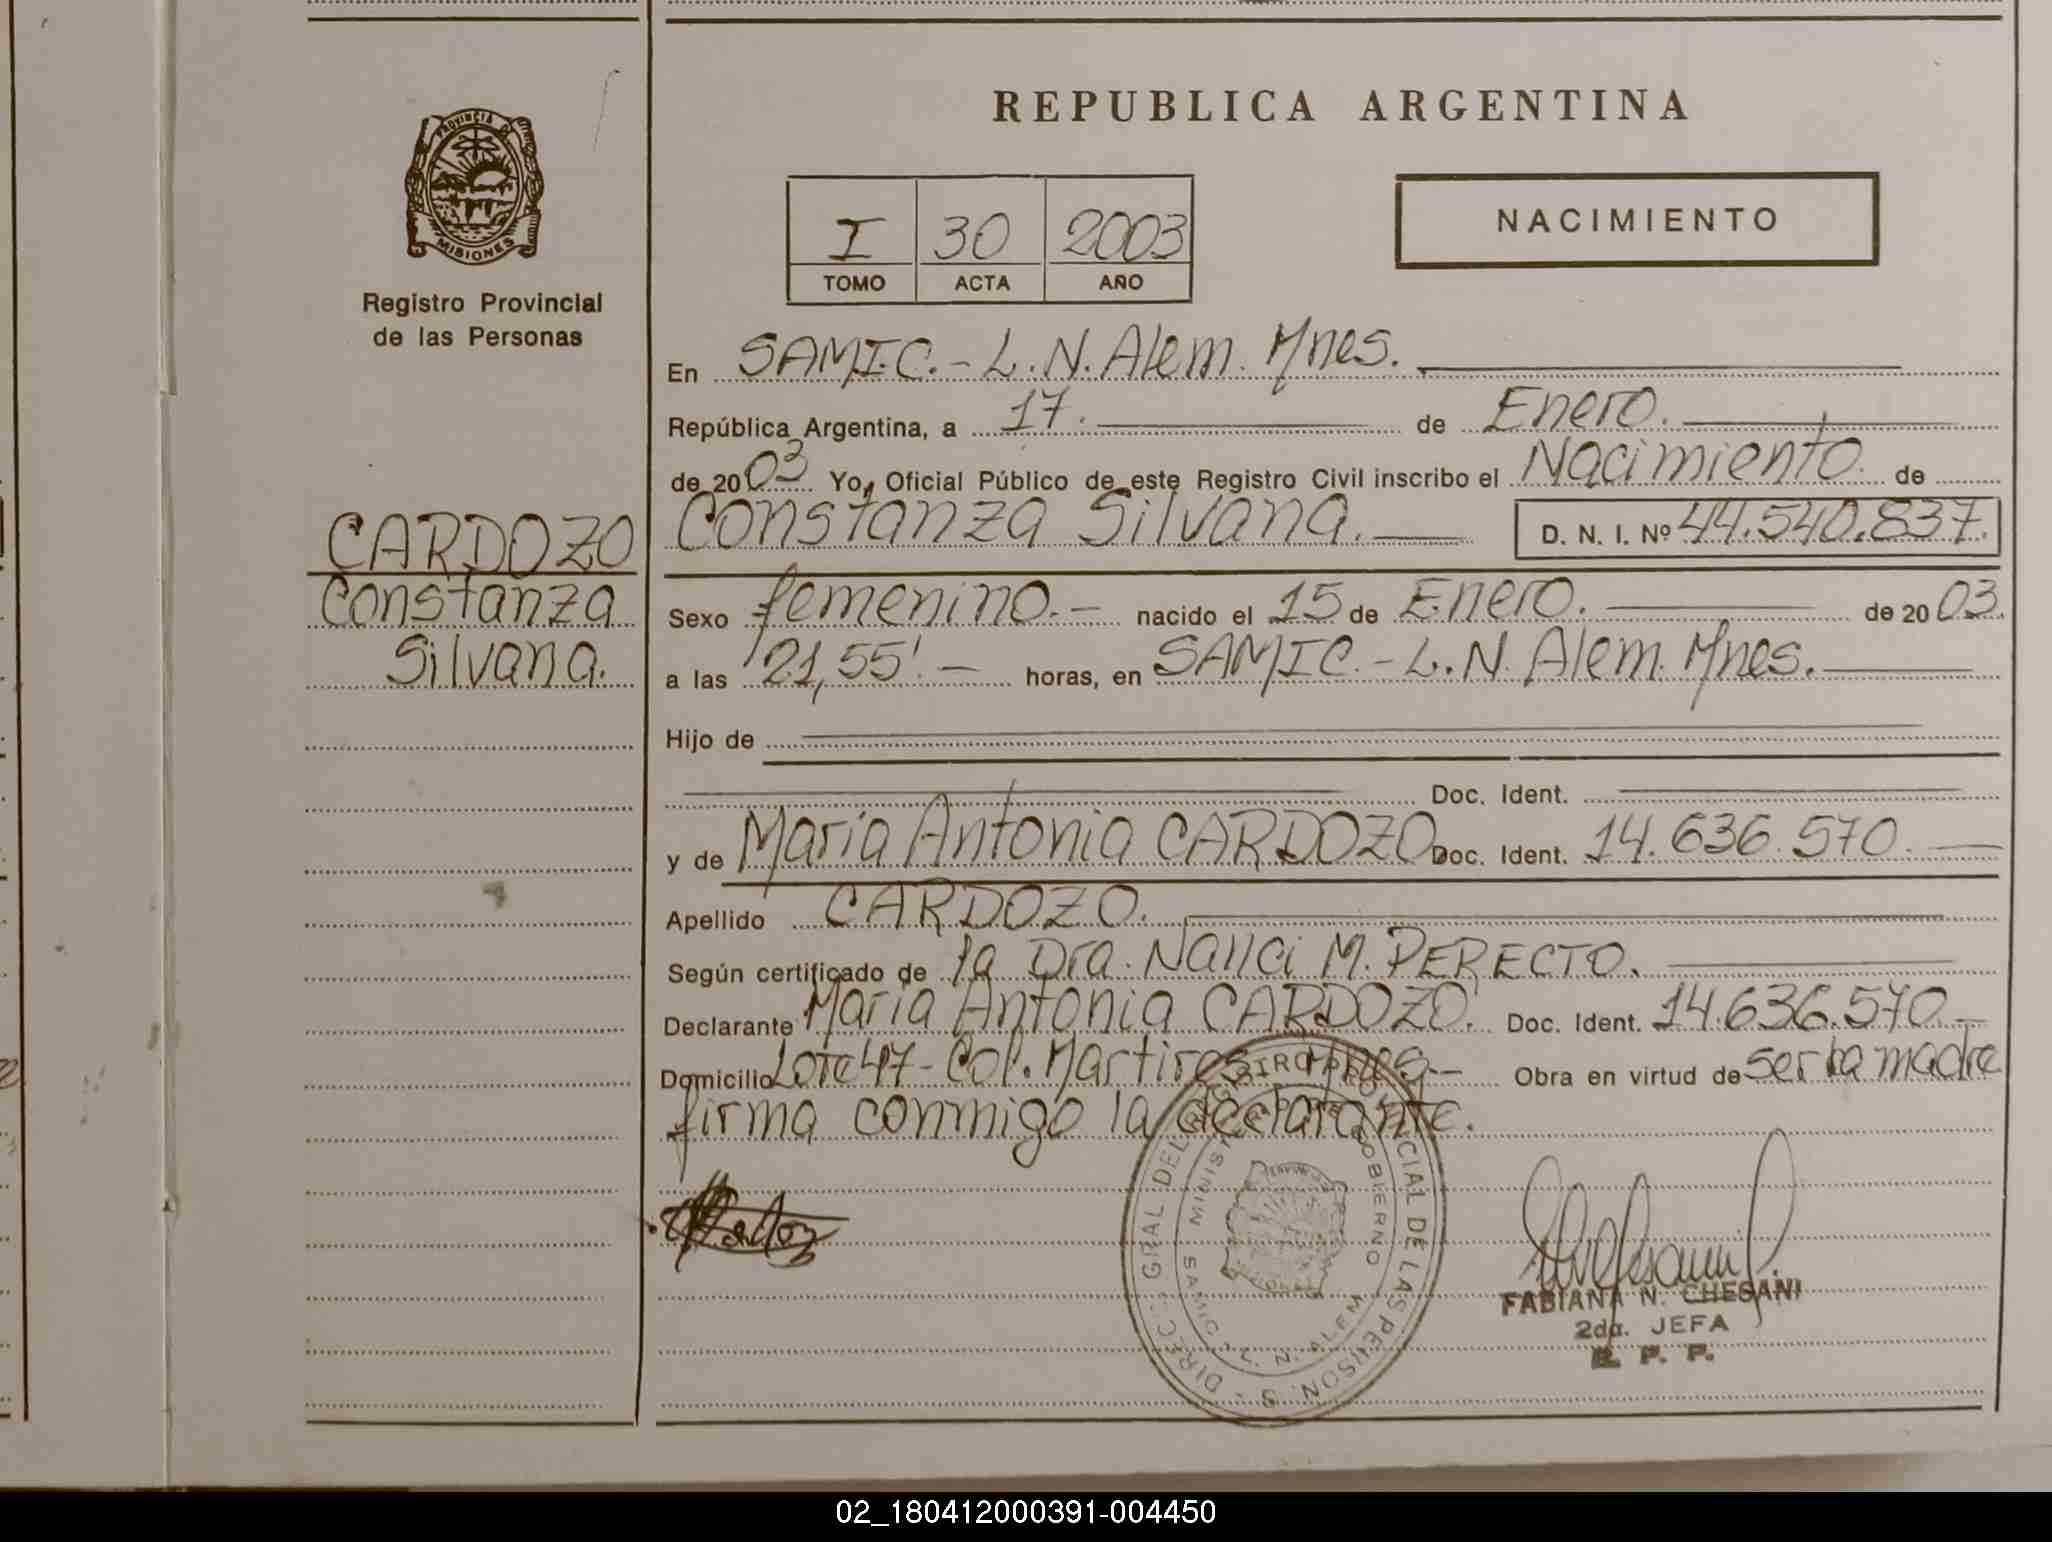 REPUBLICA ARGENTINA
PROVINCIA DE
MISIONES
Registro Provincial
de las Personas
I 30 2003
TOMO ACTA AÑO
NACIMIENTO
En SAMIC.- L.N. Alem. Mnes.
República Argentina, a 17. de Enero.
de 2003 Yo, Oficial Público de este Registro Civil inscribo el Nacimiento de
Constanza Silvana. D. N. I. Nº 44.540.837.
CARDOZO
Constanza
Silvana.
Sexo femenino.- nacido el 15 de Enero. de 2003.
a las 21,55'.- horas, en SAMIC.- L.N. Alem. Mnes.
Hijo de
Doc. Ident.
y de Maria Antonia CARDOZO Doc. Ident. 14.636.570.
Apellido CARDOZO.
Según certificado de la Dra. Nanci M. PERECTO.
Declarante Maria Antonia CARDOZO. Doc. Ident. 14.636.570.-
Domicilio Lote 47- Col. Martires Mnes.- Obra en virtud de ser la madre
firma conmigo la declarante.
DIREC. GRAL DEL REGISTRO PROVINCIAL DE LAS PERSONAS
MINISTERIO DE GOBIERNO
SAMIC - L. N. ALEM
FABIANA N. CHESANI
2da. JEFA
R. P. P.
02_180412000391-004450